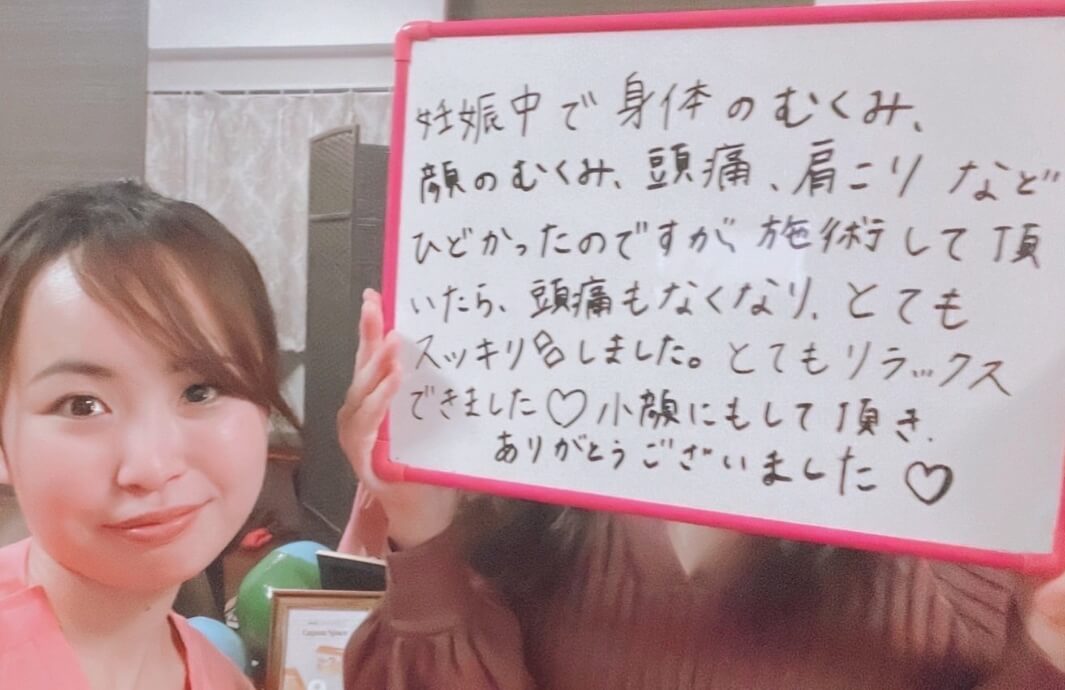 妊娠中で身体のむくみ、
顔のむくみ、頭痛、肩こりなど
ひどかったのですが、施術して頂
いたら、頭痛もなくなり、とても
スッキリしました。とてもリラックス
できました♡小顔にもして頂き、
ありがとうございました♡